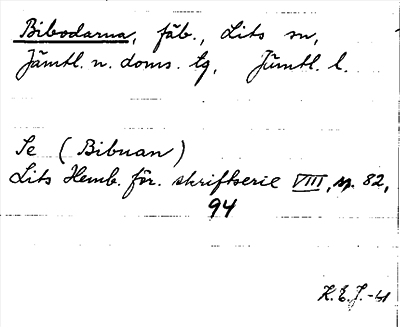 Bibodarna, fäb., Lits sn,
Jämtl. n. doms. tg, Jämtl. l.
Se (Bibuan)
Lits Hemb. för. skriftserie VIII, sp. 82,
94
K.E.J.-41